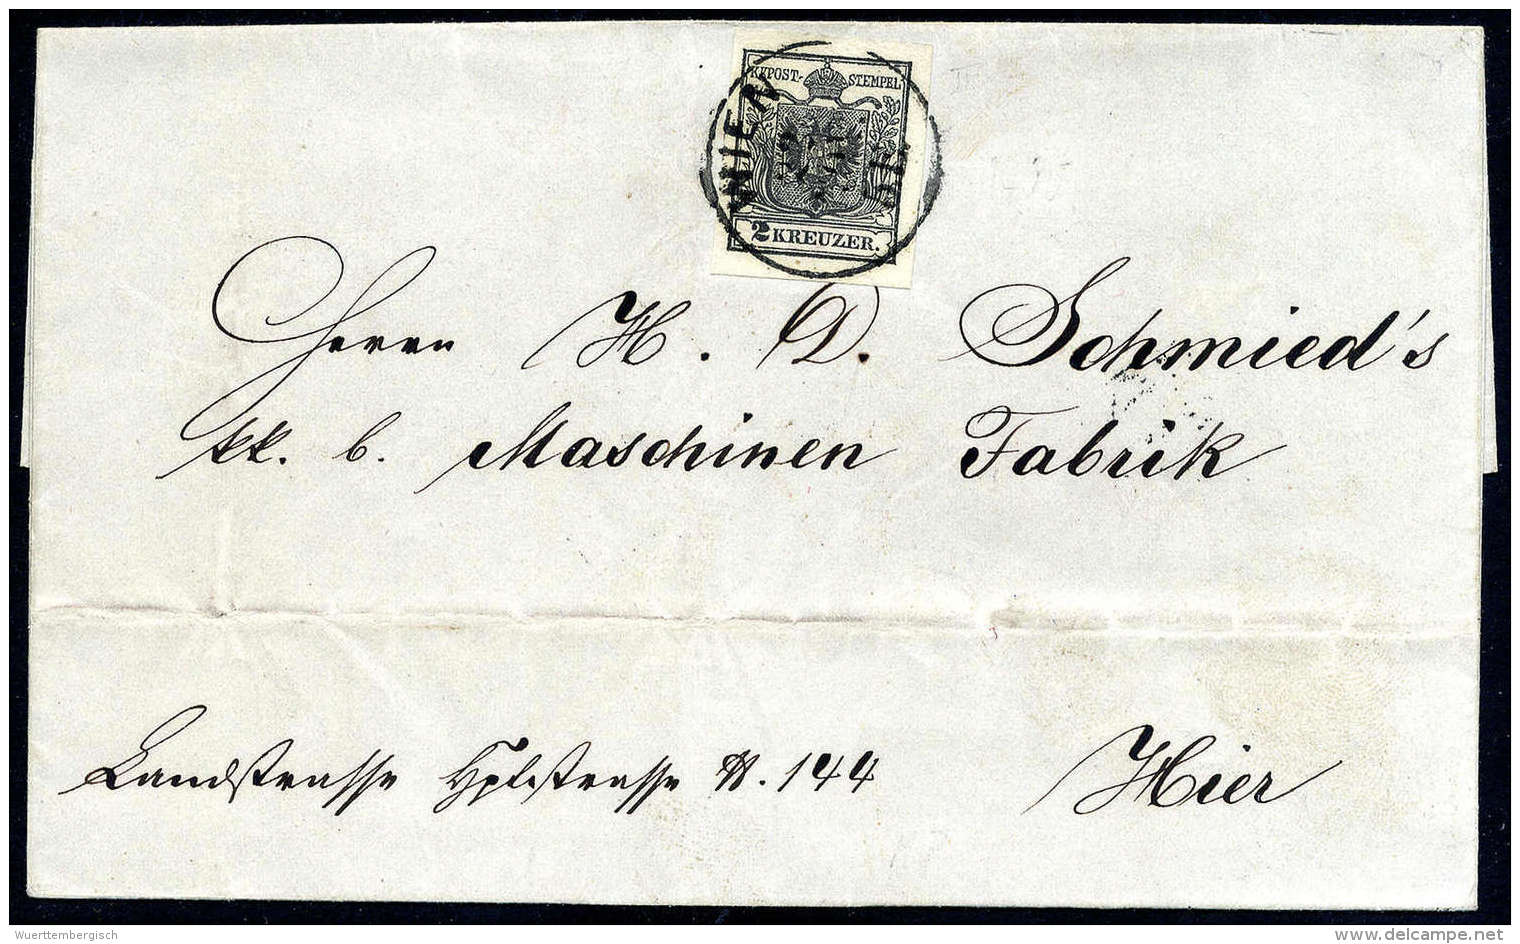 KKPOST-STEMPEL
WIEN
2 KREUZER.
Herrn H. D. Schmied's
kk. b. Maschinen Fabrik
Landstrasse Hptstrasse N. 144 Hier
Wuerttembergisch
www.delcampe.net